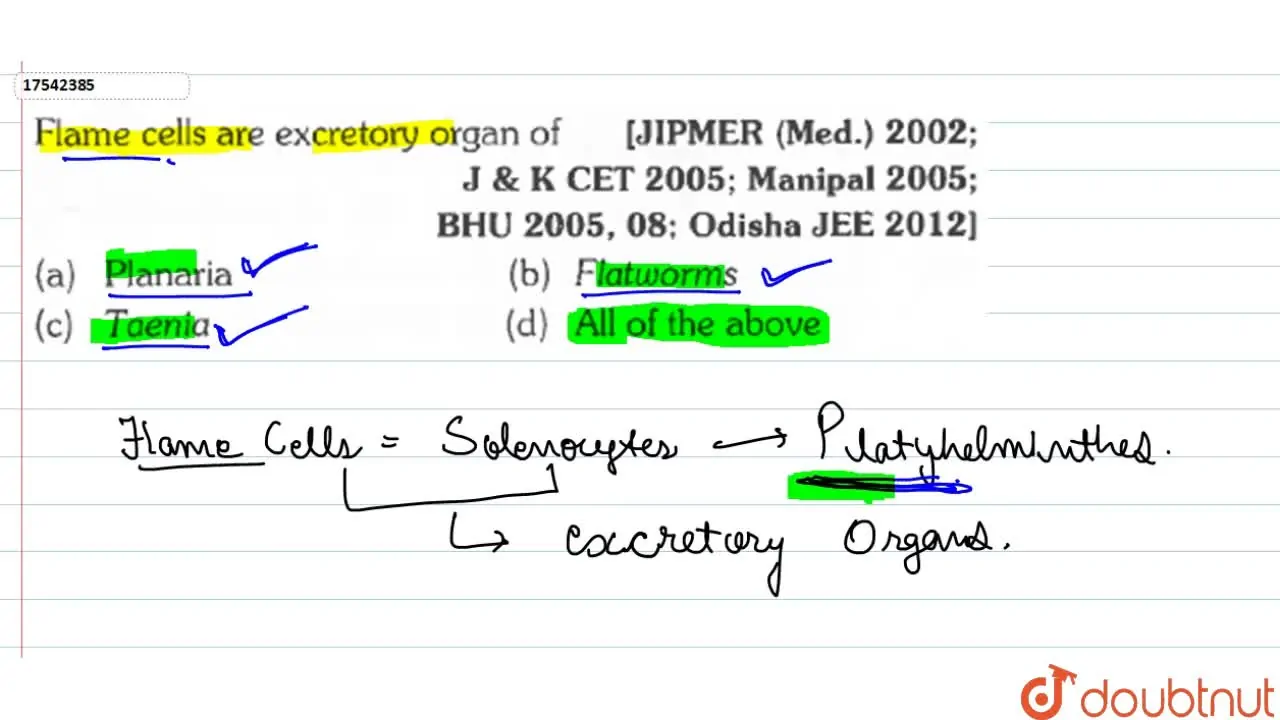 17542385
Flame cells are excretory organ of [JIPMER (Med.) 2002;
J & K CET 2005; Manipal 2005;
BHU 2005, 08; Odisha JEE 2012]
(a) Planaria (b) Flatworms
(c) Taenia (d) All of the above
Flame Cells = Solenocytes → Platyhelminthes.
↳ excretory Organs.
doubtnut